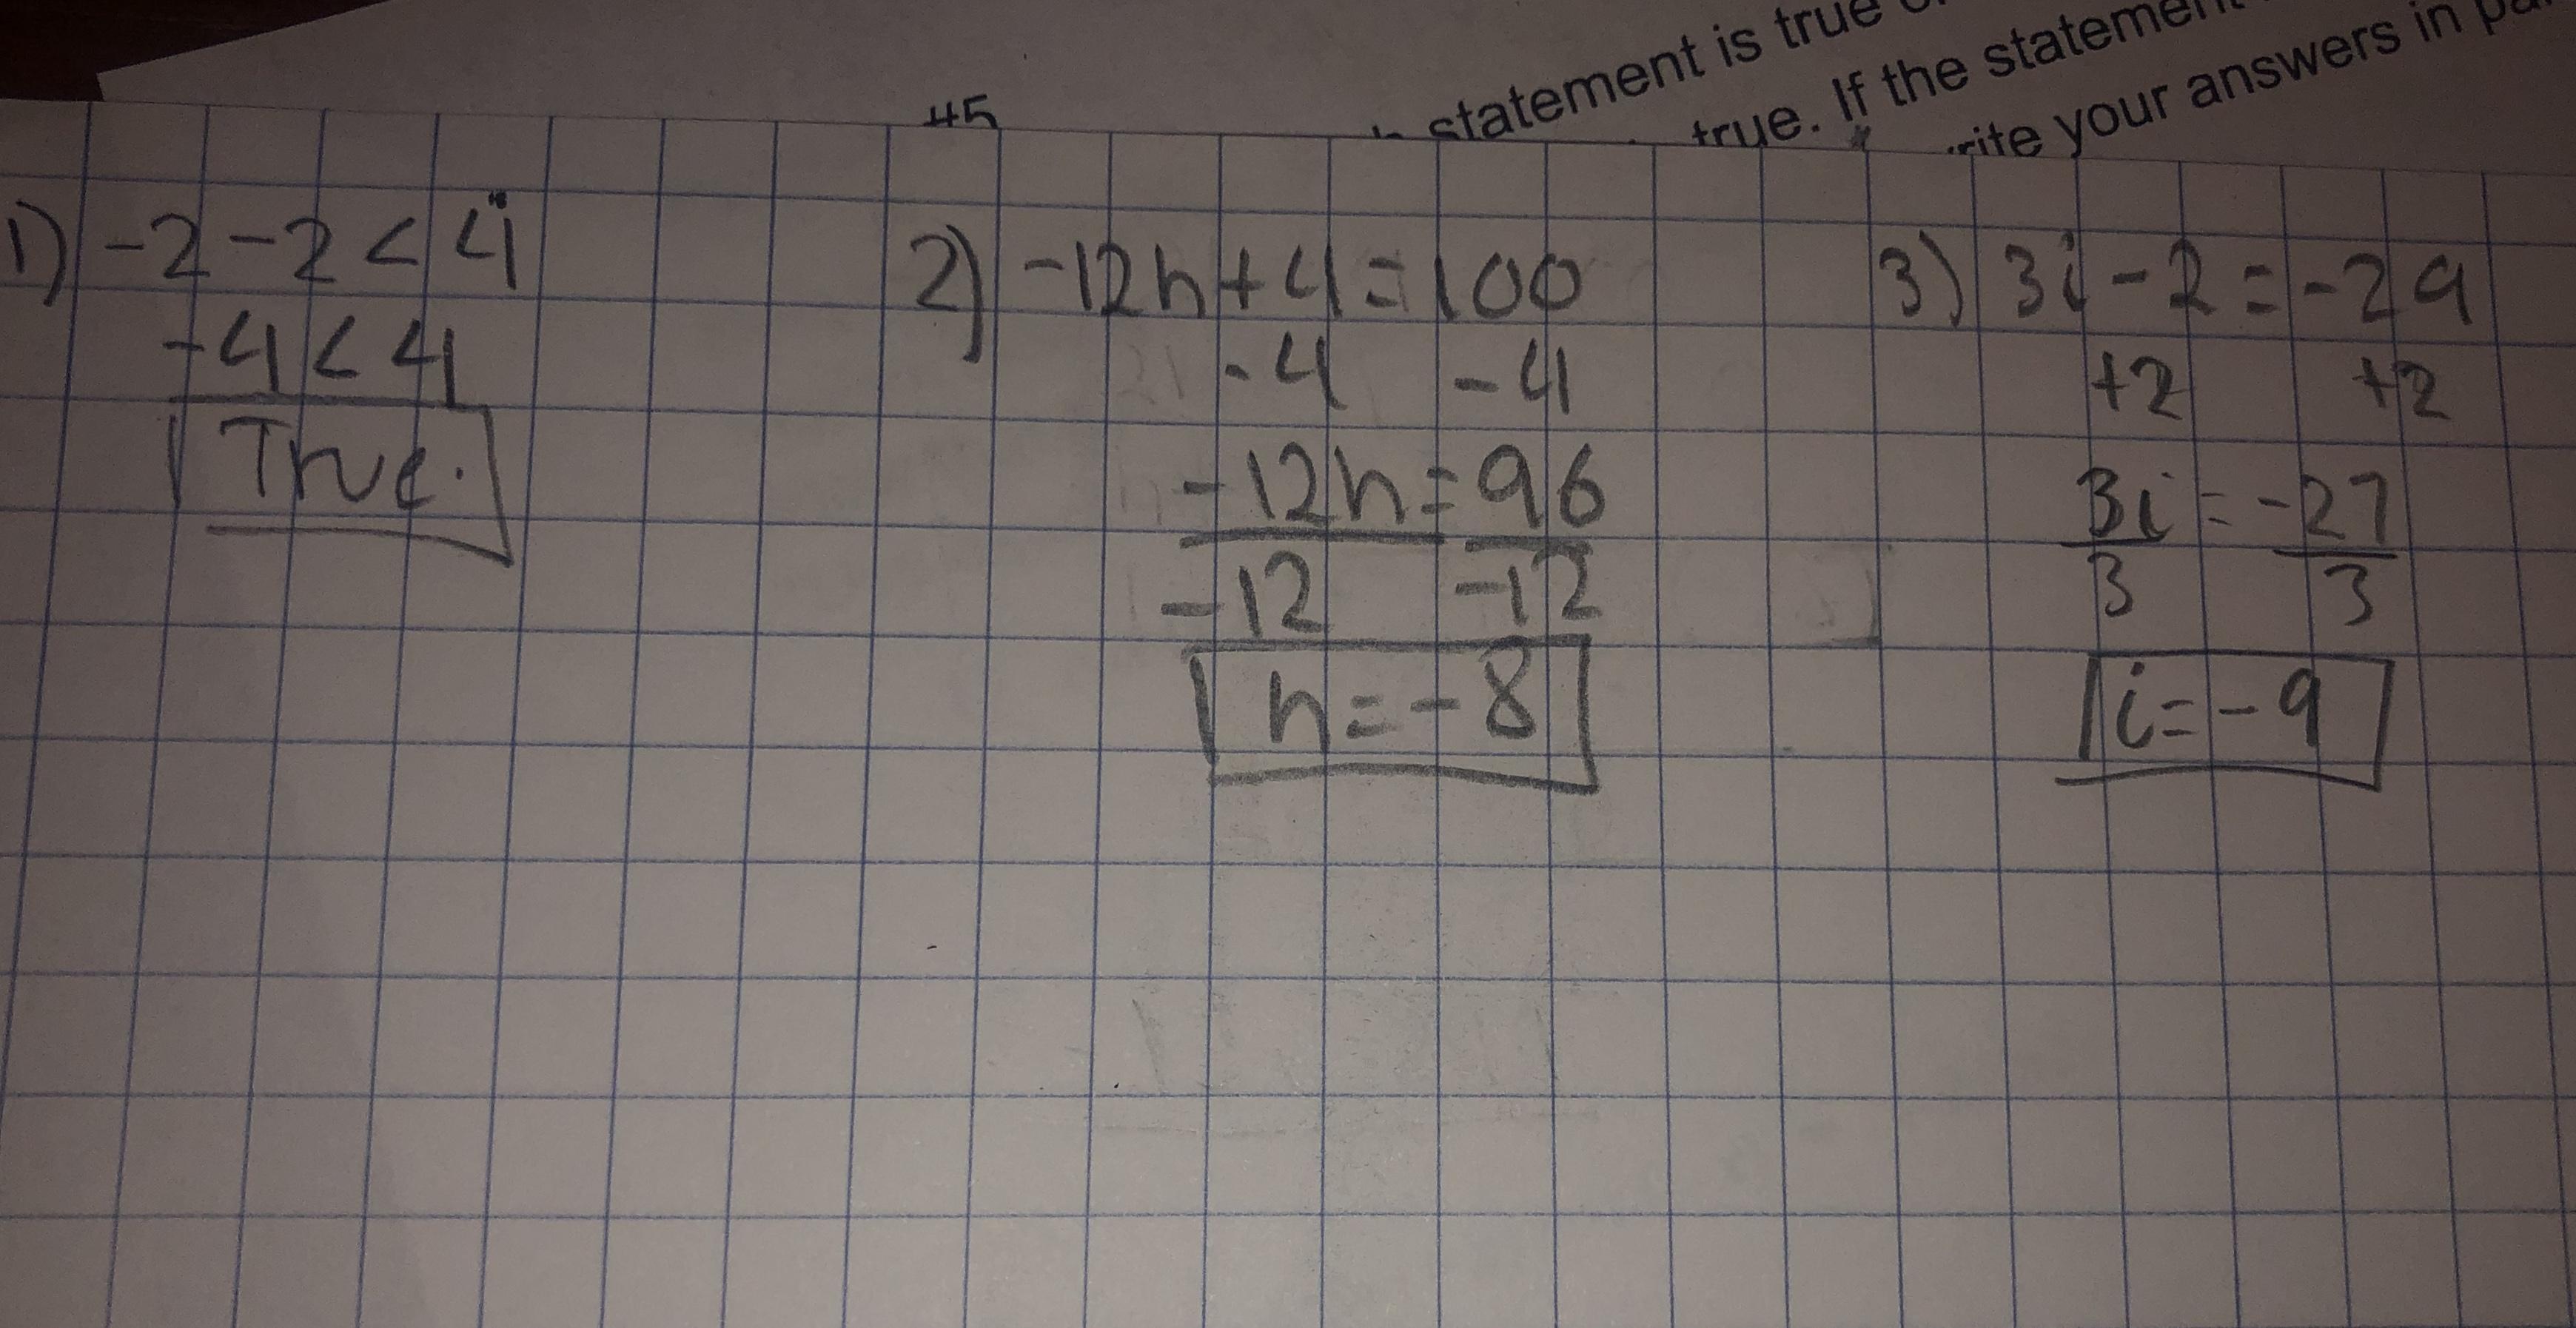 statement is true
true. If the statement
write your answers in
45
1) -2-2<4
-4<4
True.
2) -12h+4=100
-4 -4
-12h=96
-12 -12
h=-8
3) 3i-2=-29
+2 +2
3i=-27
3 3
i=-9